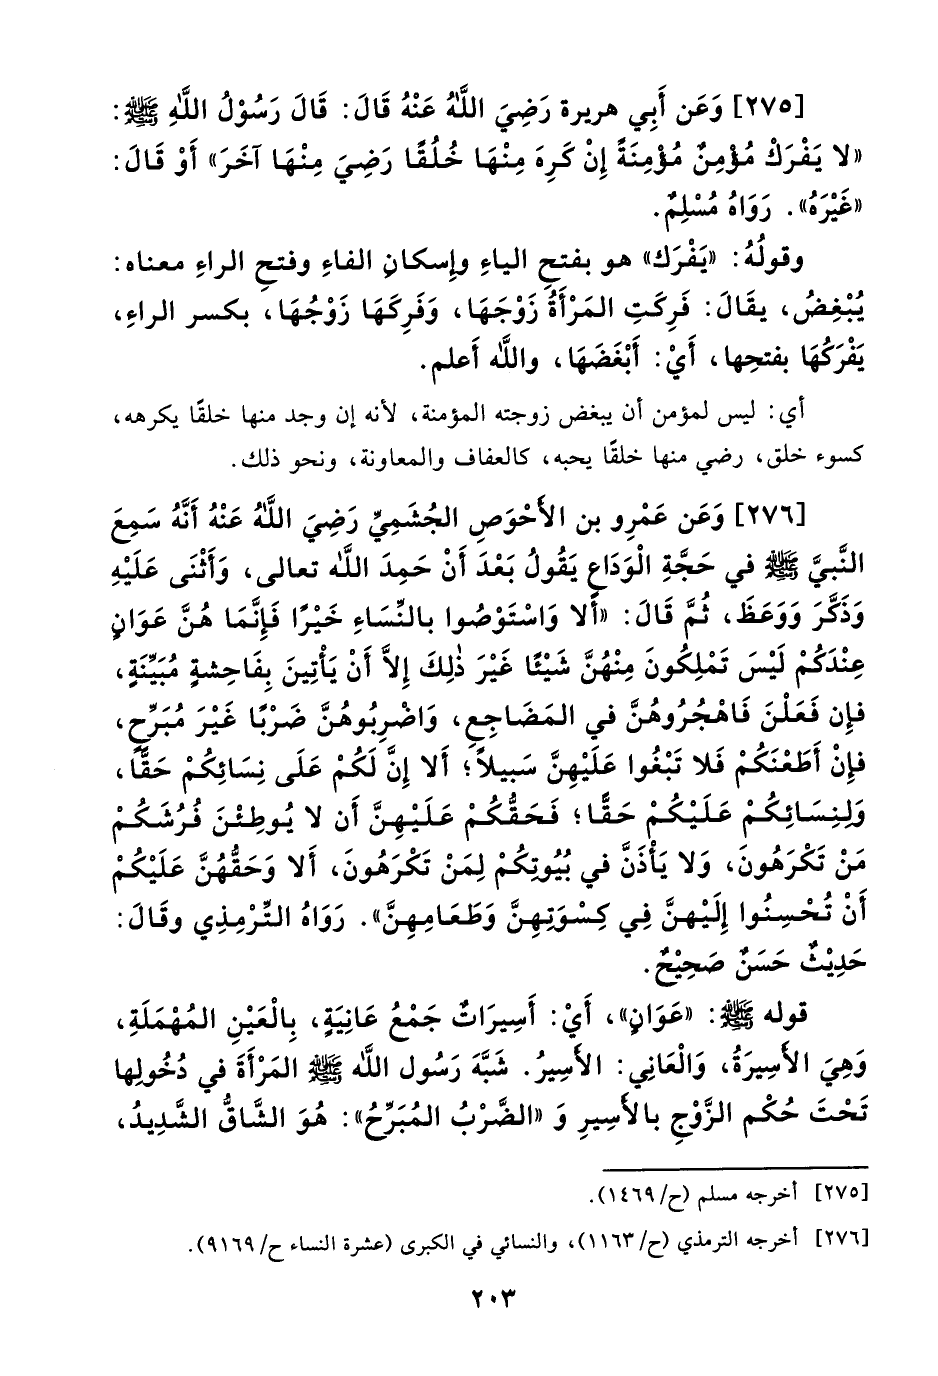 [٢٧٥] وَعَن أَبِي هريرة رَضِيَ اللَّهُ عَنْهُ قَالَ: قَالَ رَسُوْلُ اللَّهِ ﷺ:
«لا يَفْرَكْ مُؤْمِنٌ مُؤْمِنَةً إِنْ كَرِهَ مِنْهَا خُلُقًا رَضِيَ مِنْهَا آخَرَ» أَوْ قَالَ:
«غَيْرَهُ». رَوَاهُ مُسْلِمٌ.
وقولُهُ: «يَفْرَك» هو بفتحِ الياءِ وإسكانِ الفاءِ وفتحِ الراءِ معناه:
يُبْغِضُ، يقالَ: فَرِكَتِ المَرْأَةُ زَوْجَهَا، وَفَرِكَهَا زَوْجُهَا، بكسر الراءِ،
يَفْرَكُهَا بفتحِها، أَيْ: أَبْغَضَهَا، واللَّه أعلم.
أي: ليس لمؤمن أن يبغض زوجته المؤمنة، لأنه إن وجد منها خلقًا يكرهه،
كسوء خلق، رضي منها خلقًا يحبه، كالعفاف والمعاونة، ونحو ذلك.
[٢٧٦] وَعَن عَمْرِو بن الأَحْوَصِ الجُشَمِيِّ رَضِيَ اللَّهُ عَنْهُ أَنَّهُ سَمِعَ
النَّبِيَّ ﷺ في حَجَّةِ الْوَدَاعِ يَقُولُ بَعْدَ أَنْ حَمِدَ اللَّه تعالى، وَأَثْنَى عَلَيْهِ
وَذَكَّرَ وَوَعَظَ، ثُمَّ قَالَ: «أَلا وَاسْتَوْصُوا بالنِّسَاءِ خَيْرًا فَإِنَّمَا هُنَّ عَوَانٍ
عِنْدَكُمْ لَيْسَ تَمْلِكُونَ مِنْهُنَّ شَيْئًا غَيْرَ ذٰلِكَ إِلاَّ أَنْ يَأْتِينَ بِفَاحِشةٍ مُبَيِّنَةٍ،
فإِن فَعَلْنَ فَاهْجُرُوهُنَّ في المَضَاجِعِ، وَاضْرِبُوهُنَّ ضَرْبًا غَيْرَ مُبَرِّحٍ،
فإِنْ أَطَعْنَكُمْ فَلا تَبْغُوا عَلَيْهِنَّ سَبيلاً؛ أَلا إِنَّ لَكُمْ عَلَى نِسَائِكُمْ حَقًّا،
وَلِنِسَائِكُمْ عَلَيْكُمْ حَقًّا؛ فَحَقُّكُمْ عَلَيْهِنَّ أَن لا يُوطِئْنَ فُرُشَكُمْ
مَنْ تَكْرَهُونَ، وَلا يَأْذَنَّ في بُيُوتِكُمْ لِمَنْ تَكْرَهُونَ، أَلا وَحَقُّهُنَّ عَلَيْكُمْ
أَنْ تُحْسِنُوا إِلَيْهِنَّ فِي كِسْوَتِهِنَّ وَطَعَامِهِنَّ». رَوَاهُ التِّرْمِذِي وقَالَ:
حَدِيْثٌ حَسَنٌ صَحِيْحٌ.
قوله ﷺ: «عَوَانٍ»، أَيْ: أَسِيرَاتٌ جَمْعُ عَانِيَةٍ، بِالْعَيْنِ المُهْمَلَةِ،
وَهِيَ الأَسِيرَةُ، وَالْعَانِي: الأَسِيرُ. شَبَّهَ رَسُول اللَّه ﷺ المَرْأَةَ في دُخُولِها
تَحْتَ حُكْمِ الزَّوْجِ بالأَسِيرِ وَ «الضَّرْبُ المُبَرِّحُ»: هُوَ الشَّاقُّ الشَّدِيدُ،
[٢٧٥] أخرجه مسلم (ح/١٤٦٩).
[٢٧٦] أخرجه الترمذي (ح/١١٦٣)، والنسائي في الكبرى (عشرة النساء ح/٩١٦٩).
٢٠٣